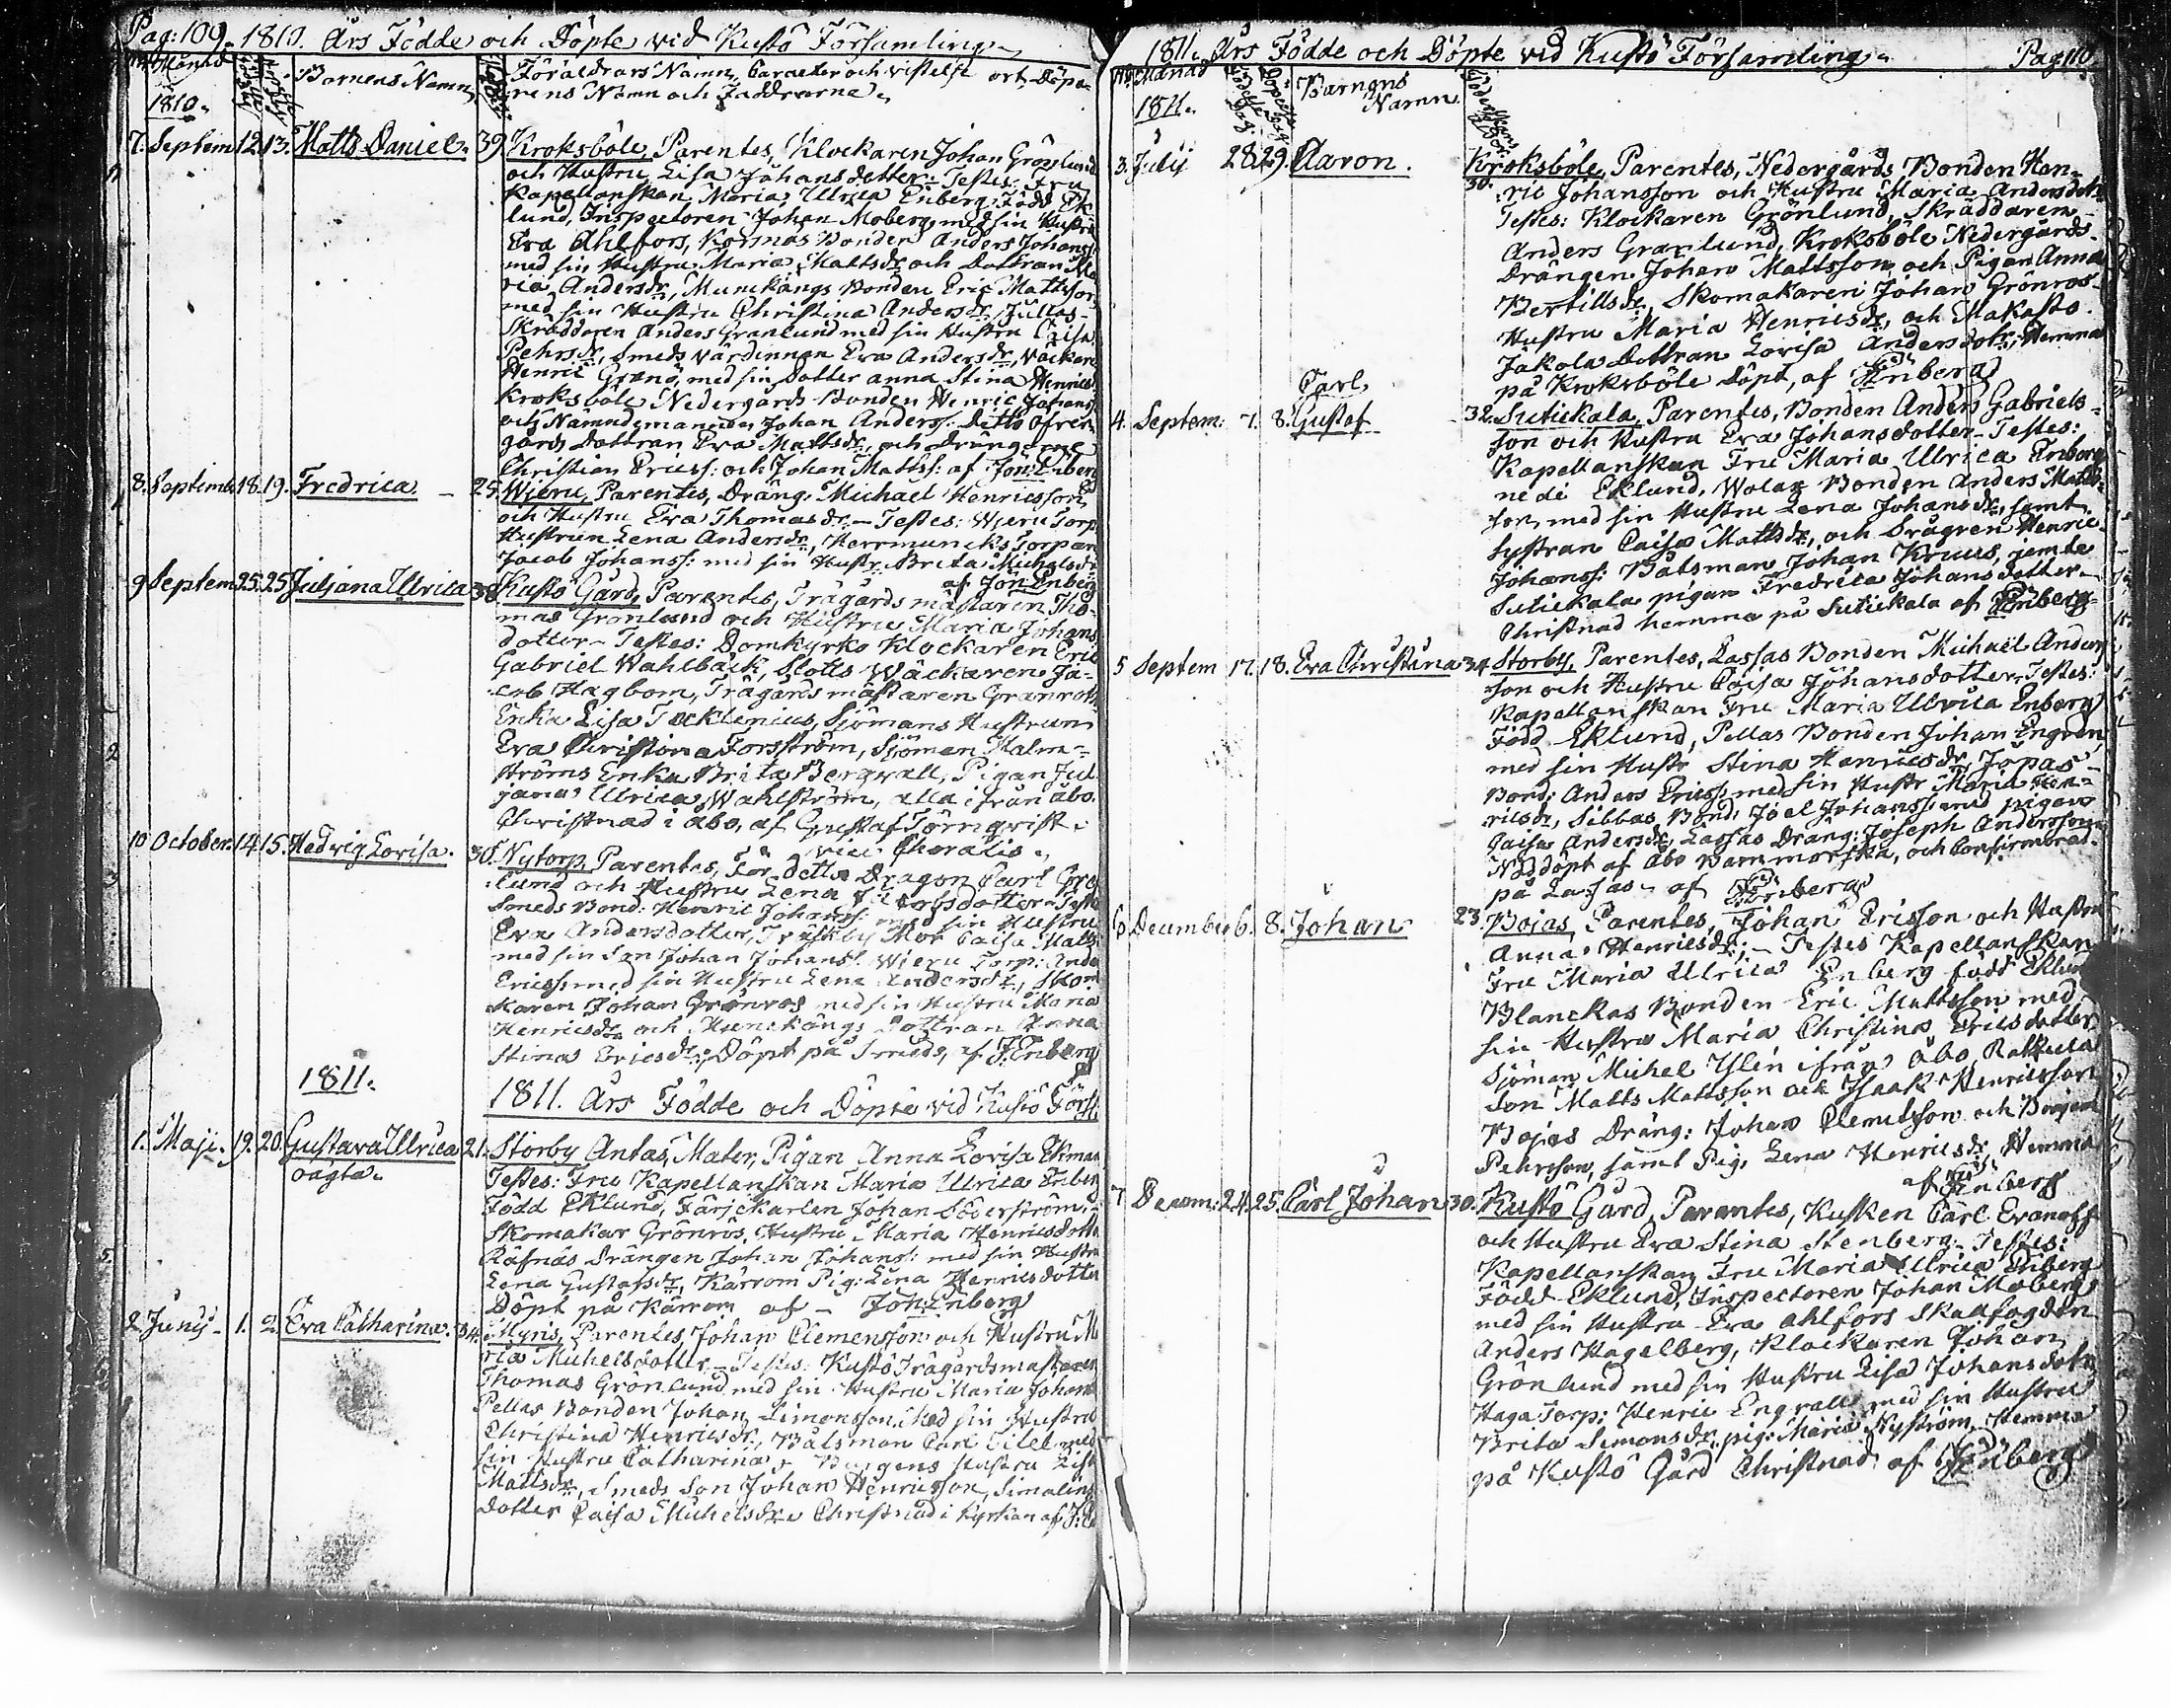 Pag: 109. 1810. Års Födde och Döpte vid Kustö Församling.
Månad
Barnens Namn
Föräldrars Namn, Caracter och vistelse ort, Döpa-
1810.
rens Namn och Faddrarne.
7. Septem 12. 13. Matts Daniel. 39. Kroksböle, Parentes, Klockaren Johan Grönlund
och Hustru Lisa Johansdotter. Testes: Fru
Kapellanskan Maria Ulrica Enberg, Född Ek-
lund, Inspectoren Johan Moberg, med sin Hustru
Eva Ahlfors, Kornnas Bonden Anders Johanss.
med sin Hustru Maria Mattsdr och Dottran Ma
ria Andersdr, Munckängs Bonden Eric Mattsson
med sin Hustru Christina Andersdr, Jullas-
Skräddaren Anders Granlund med sin Hustru Caisa
Pehrsdr, Smeds Värdinnan Eva Andersdr, Väckare
Henric Granö, med sin Dotter Anna Stina Henricsdr
Kroksböle Nedergårds Bonden Henric Johanss.
och Nämndemannen Johan Anderss: Ditto Öfver-
gårds Dottran Eva Mattsdr, och Drängarne
Christian Ericss: och Johan Mattss: af Jon: Enberg
8. Septemb 18. 19. Fredrica. - 25. Wieru, Parentes, Dräng, Michael Henricsson
och Hustru Eva Thomasdr - Testes: Wjeru Torp.
Hustrun Lena Andersdr, Herrmuncks Torpar
Jacob Johanss: med sin Hustr. Brita Michelsdr
af Jon Enberg
9 Septem 25. 25 Juljana Ulrica 38 Kustö Gård, Parentes, Trägårds mästaren Tho-
mas Grönlund och Hustru Maria Johans
dotter - Testes: Domkyrko Klockaren Eric
Gabriel Wahlbäck, Slotts Wäckaren Ja-
cob Hagbom, Trägårds mästaren Granroth
Enka Lisa Tocklenius, Sjömans Hustrun
Eva Christina Forsström, Sjöman Malm-
ströms Enka Brita Bergvall, Pigan Jul
jana Ulrica Wahlström, alla ifrån Åbo.
Christnad i Åbo, af Gustaf Törnqvist
Vice Choralis.
10 October. 14. 15. Hedvig Lovisa. 30. Nytorp, Parentes, För detta Dragon Carl Grö
lund och Hustru Lena dotter - Teste
Smeds Bond: Henric Johanss: med sin Hustru
Eva Andersdotter, Mor Caisa Matts
med sin Son Johan Johanss: Wieru Torp: Ande
Ericss: med sin Hustru Lena Andersdr, Skom
karen Johan Grönros med sin Hustru Maria
Henricsdr och Munckängs Dottran Anna
Stina Ericsdr, Döpt på Smeds, af J: Enberg
1811.
1811. Års Födde och Döpte vid Kustö Förs
1. Maji. 19. 20. Gustava Ulrica 21. Storby Antas, Mater, Pigan Anna Lovisa Ekman
oägta.
Testes: Fru Kapellanskan Maria Ulrica Enberg
Född Eklund, Färjekarlen Johan Söderström,
Skomakar Grönros, Hustru Maria Henricsdotte
Räfnäs Drängen Johan Johanss: med sin Hustru
Lena Gustafsdr, Kärrom Pig: Lena Henricsdotter
Döpt på Kärrom af - Jon: Enberg
2 Junij - 1. 2. Eva Catharina. 34. Myris, Parentes, Johan Clemensson och Hustru M
ria Michelsdotter - Testes: Kustö Trägårdsmästaren
Thomas Grönlund med sin Hustru Maria Johans
Pellas Bonden Johan Simonsson med sin Hustru
Christina Henricsdr, Båtsman Carl med
sin Hustru Catharina, Hustru Lisa
Mattsdr, Smeds Son Johan Henricsson, Simalins
Dotter Caisa Michelsdr. Christnad i Kyrkan af J:
1811. Års Födde och Döpte vid Kustö Församling.
Pag 110
Månad
Födelse dag.
Döpelse dag.
Barnens
Namn
1811.
3. Julij 28. 29. Aaron. Kroksböle, Parentes, Nedergårds Bonden Hen-
30. ric Johansson och Hustru Maria Andersdotr
Testes: Klockaren Grönlund, Skräddaren
Anders Granlund, Kroksböle Nedergårds
Drängen Johan Mattsson, och Pigan Anna
Bertillsdr, Skomakaren Johan Grönros
Hustru Maria Henricsdr, och Makasto
Jakola Dottran Lovisa Andersdotr, Hemma
på Kroksböle Döpt, af Enberg
Carl
4. Septem: 7. 8. Gustaf 32. Sutiekala, Parentes, Bonden Anders Gabriels-
son och Hustru Eva Johansdotter - Testes:
Kapellanskan Fru Maria Ulrica Enberg
nedi Eklund, Wolax Bonden Anders Matts-
son, med sin Hustru Lena Johansdr, samt
Systran Caisa Mattsdr, och Drägren Henric
Johanss: Båtsman Johan Kruus, jemte
Sutiekala pigan Fredrica Johansdotter
Christnad hemma på Sutiekala af Enberg
5 Septem 17. 18. Eva Christina 34. Storby, Parentes, Lassas Bonden Michaël Anders
son och Hustru Caisa Johansdotter. Testes:
Kapellanskan Fru Maria Ulrica Enberg
Född Eklund, Pellas Bonden Johan Engren
med sin Hustr. Stina Henricsdr, Jopas
Bond: Anders Ericss: med sin Hustr Maria Hen-
ricsdr, Sibbas Bond: Joel Johanss: med pigan
Caisa Andersdr, Lassas Dräng: Joseph Andersson
Nöddöpt af Åbo Barnmorska, och Confirmerad
på Lassas af Enberg
6 December 6. 8. Johan 23. Bojas, Parentes, Johan Ericsson och Hustru
Anna Henricsdr - Testes Kapellanskan
Fru Maria Ulrica Enberg född Eklund
Blanckas Bonden Eric Mattsson med
sin Hustru Maria Christina Ericsdotter
Sjöman Michel Ylén ifrån Åbo,
Son Matts Mattsson och Isaak Henricsson
Bojas Dräng: Johan Clemetsson och
Pehrsson, samt Pig: Lena Henricsdr, Hemma
af Enberg
7 Decem: 24. 25. Carl Johan 30. Kustö Gård, Parentes, Kusken Carl Evanoff
och Hustru Eva Stina Stenberg. Testes:
Kapellanskan Fru Maria Ulrica Enberg
Född Eklund, Inspectoren Johan Moberg
med sin Hustru Eva Ahlfors Skallfogden
Anders Hagelberg, Klockaren Johan
Grönlund med sin Hustru Lisa Johansdotr
Haga Torp: Henric Engvall med sin Hustru
Brita Simonsdr, pig: Maria Nyström, Hemma
på Kustö Gård Christnad af Enberg